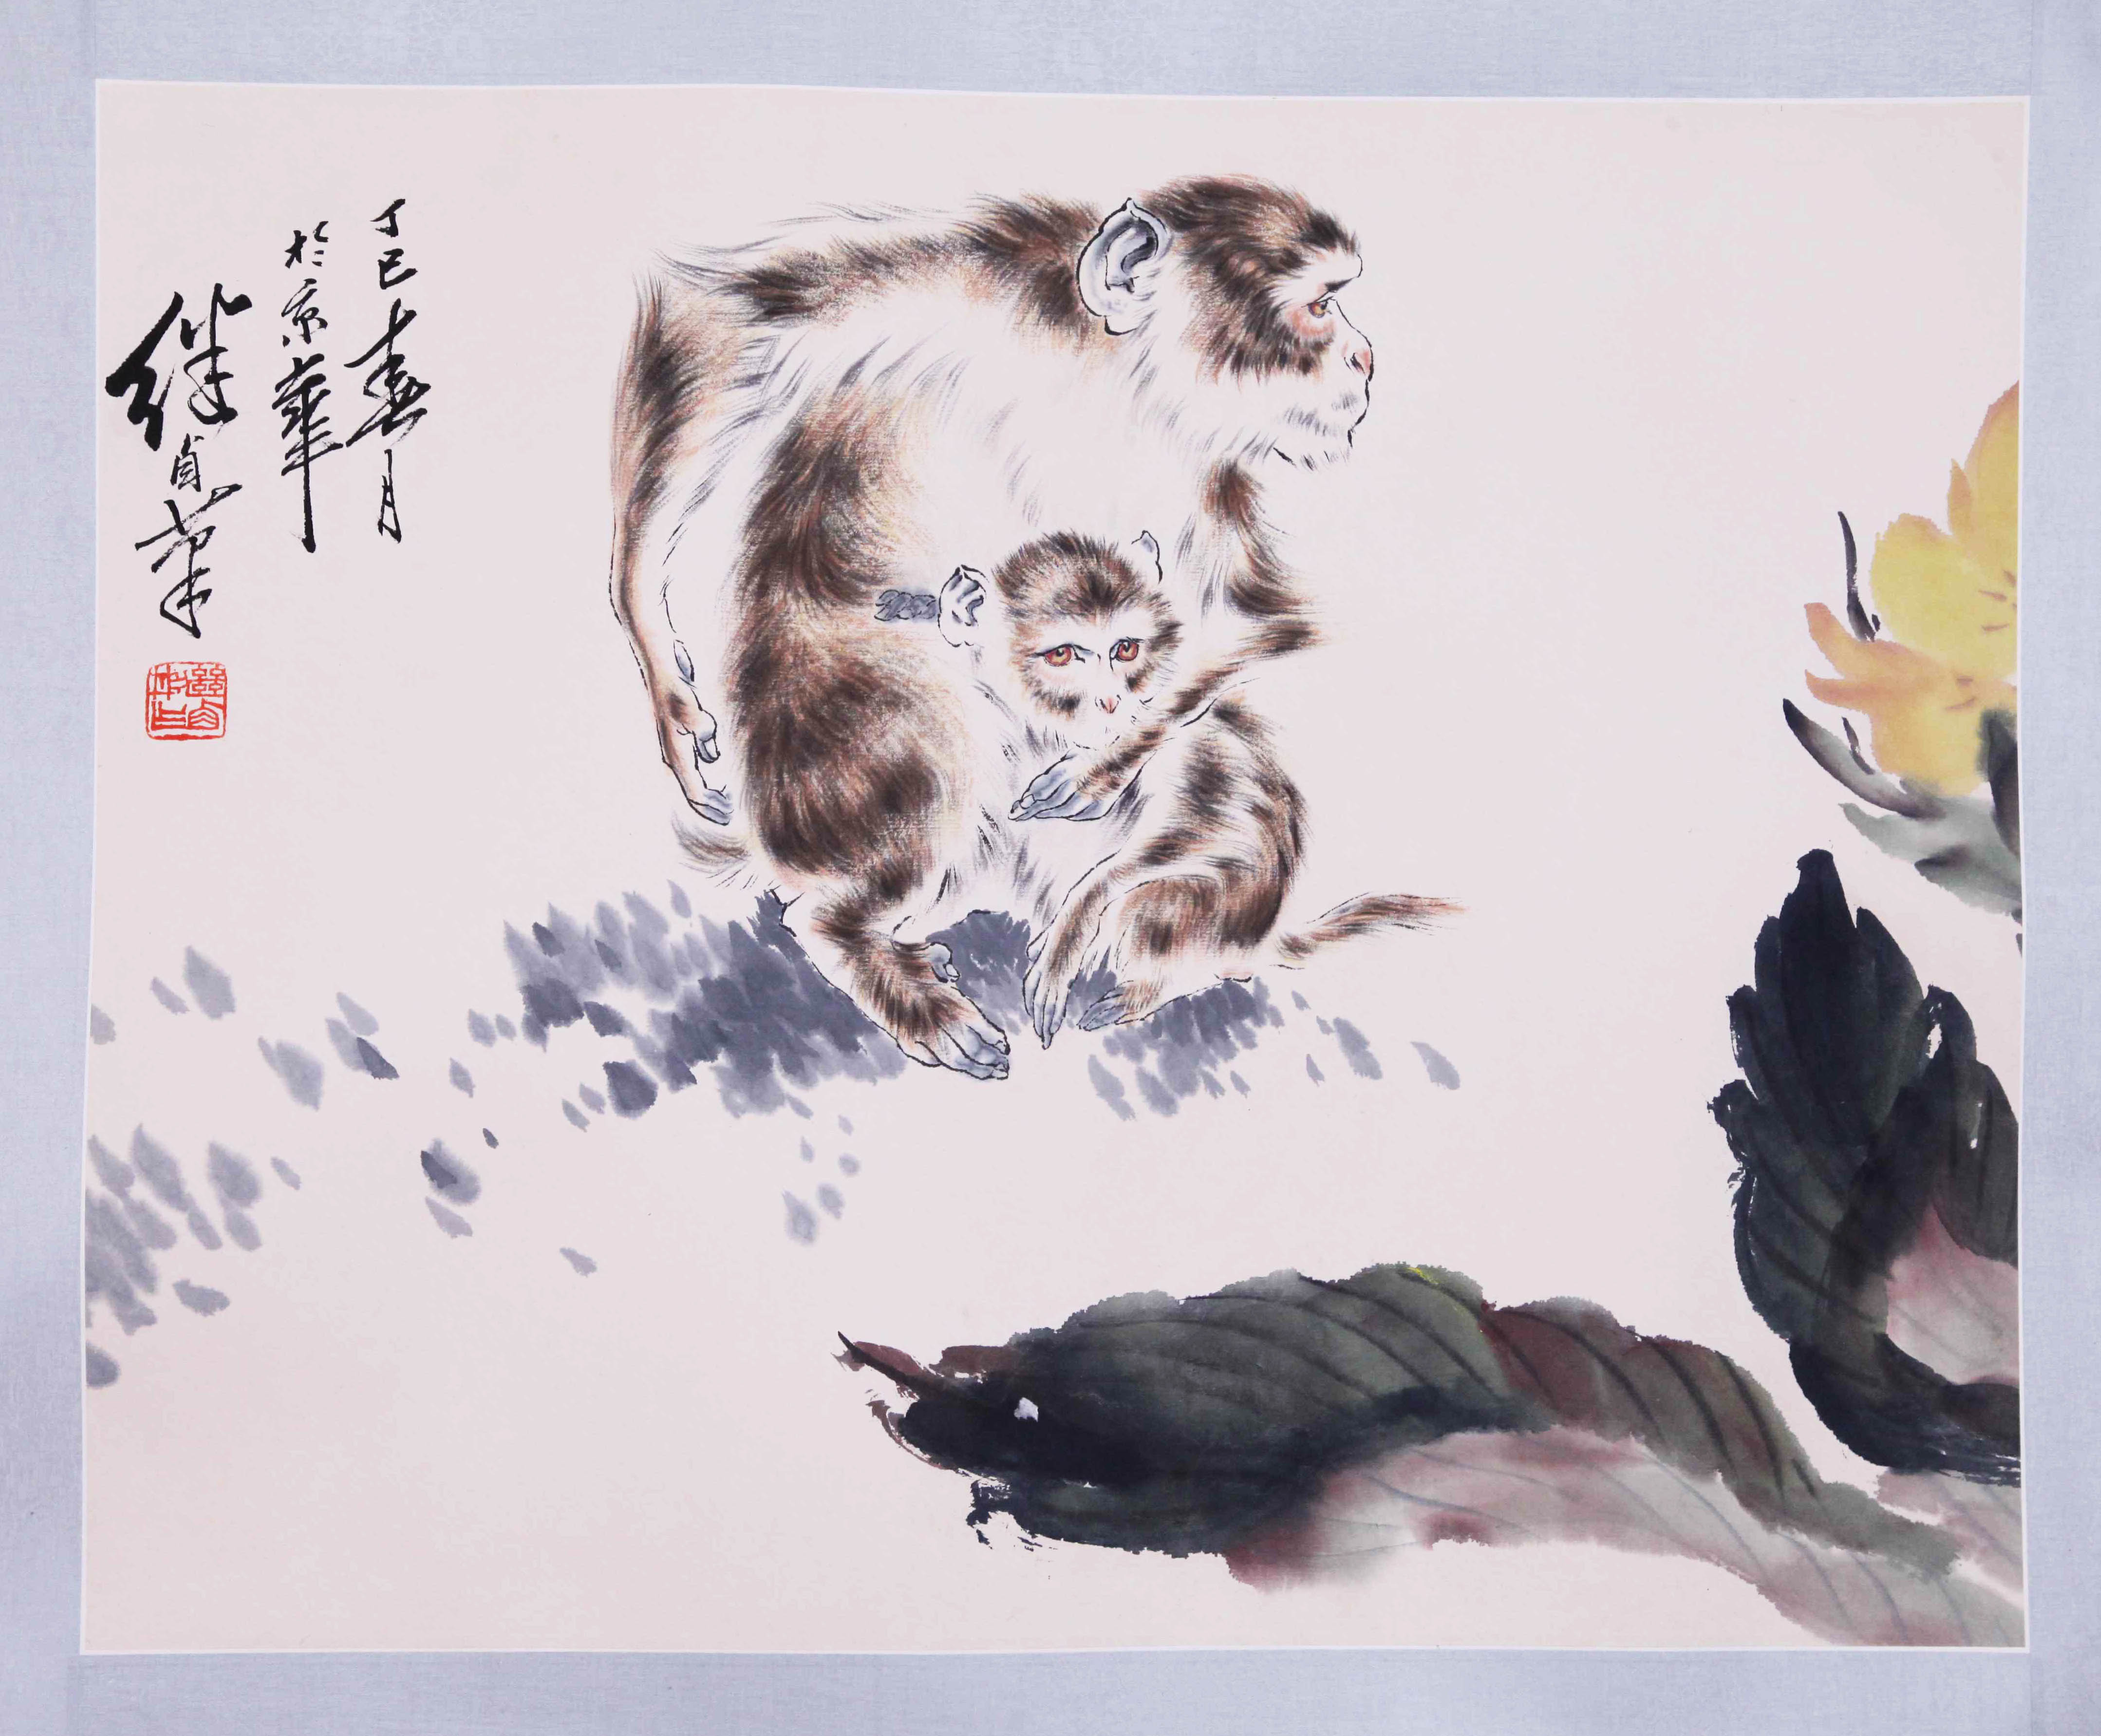 丁巳春月
於京華
继贞筆